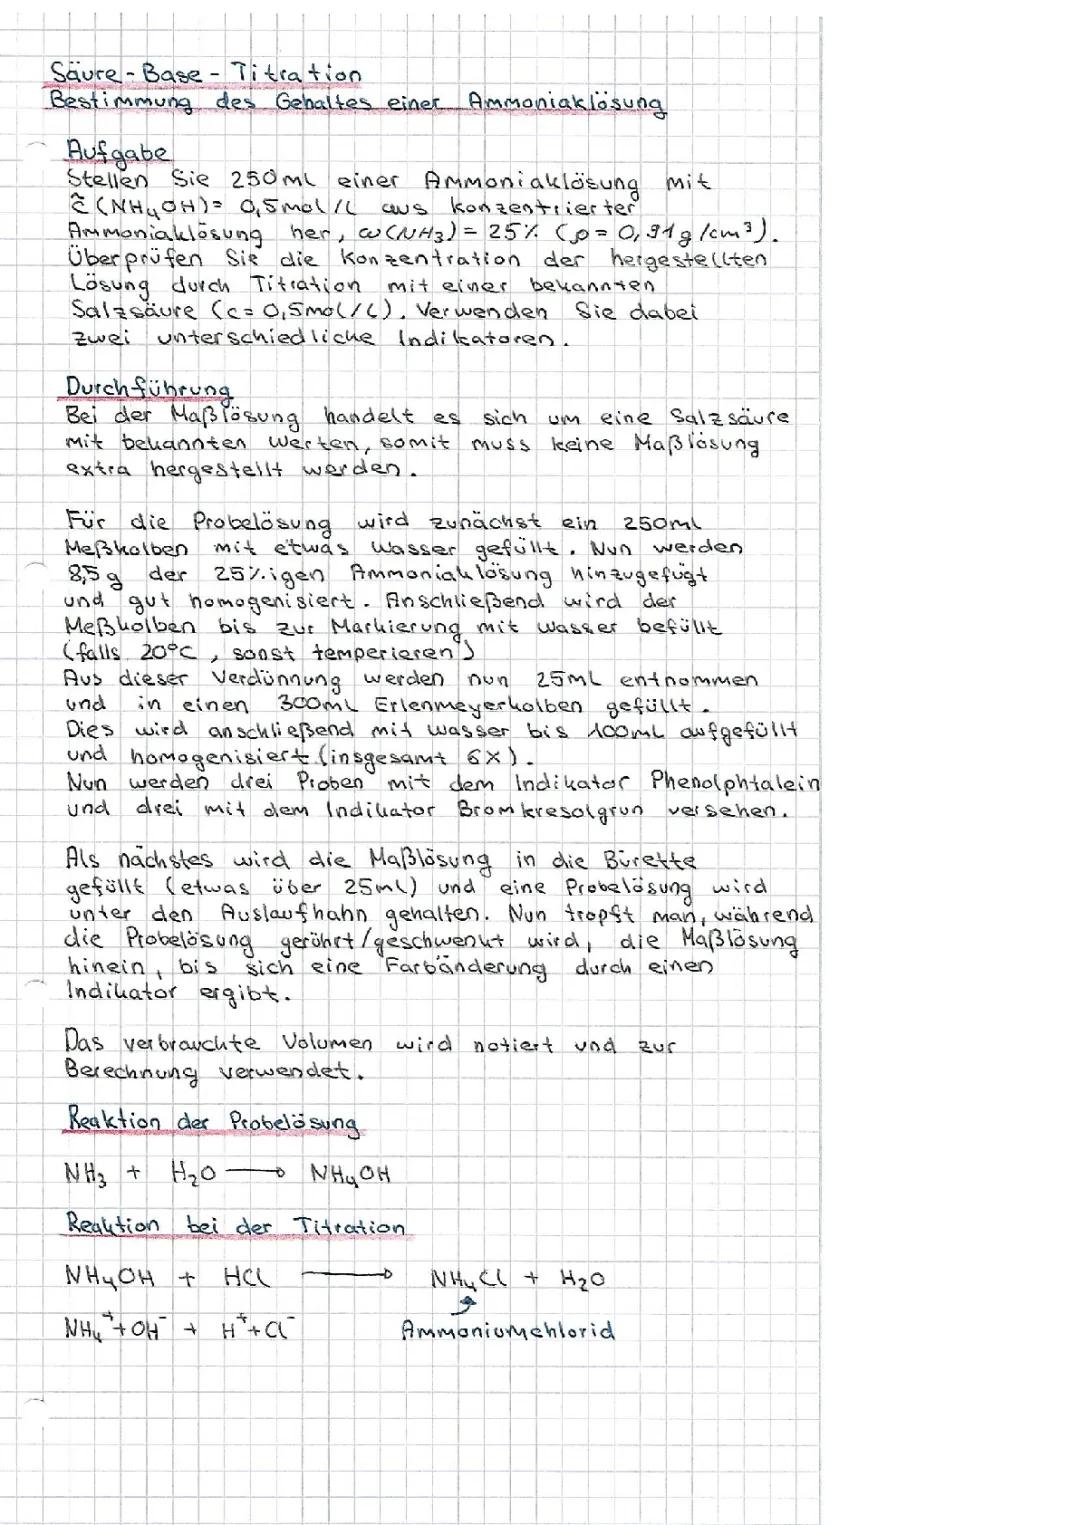 Säure-Base-Titration
Bestimmung des Gehaltes einer Ammoniaklösung
Aufgabe
Stellen Sie 250ml einer Ammoniaklösung mit
c̃(NH₄OH)= 0,5mol/L aus konzentrierter
Ammoniaklösung her, ω(NH₃)=25% (ρ=0,91g/cm³).
Überprüfen Sie die Konzentration der hergestellten
Lösung durch Titration mit einer bekannten
Salzsäure (c=0,5mol/L). Verwenden Sie dabei
zwei unterschiedliche Indikatoren.
Durchführung
Bei der Maßlösung handelt es sich um eine Salzsäure
mit bekannten Werten, somit muss keine Maßlösung
extra hergestellt werden.
Für die Probelösung wird zunächst ein 250ml
Meßkolben mit etwas Wasser gefüllt. Nun werden
8,5g der 25%igen Ammoniaklösung hinzugefügt
und gut homogenisiert. Anschließend wird der
Meßkolben bis zur Markierung mit Wasser befüllt
(falls 20°C, sonst temperieren)
Aus dieser Verdünnung werden nun 25ml entnommen
und in einen 300ml Erlenmeyerkolben gefüllt.
Dies wird anschließend mit Wasser bis 100ml aufgefüllt
und homogenisiert (insgesamt 6x).
Nun werden drei Proben mit dem Indikator Phenolphtalein
und drei mit dem Indikator Bromkresolgrün versehen.
Als nächstes wird die Maßlösung in die Bürette
gefüllt (etwas über 25ml) und eine Probelösung wird
unter den Auslaufhahn gehalten. Nun tropft man, während
die Probelösung gerührt/geschwenkt wird, die Maßlösung
hinein, bis sich eine Farbänderung durch einen
Indikator ergibt.
Das verbrauchte Volumen wird notiert und zur
Berechnung verwendet.
Reaktion der Probelösung
NH₃ + H₂O → NH₄OH
Reaktion bei der Titration
NH₄OH + HCl → NH₄Cl + H₂O
NH₄⁺+OH⁻ + H⁺+Cl⁻ Ammoniumchlorid